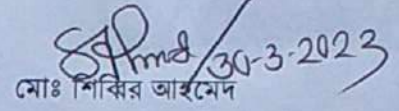 30-3-2023
মোঃ শিব্বির আহমেদ